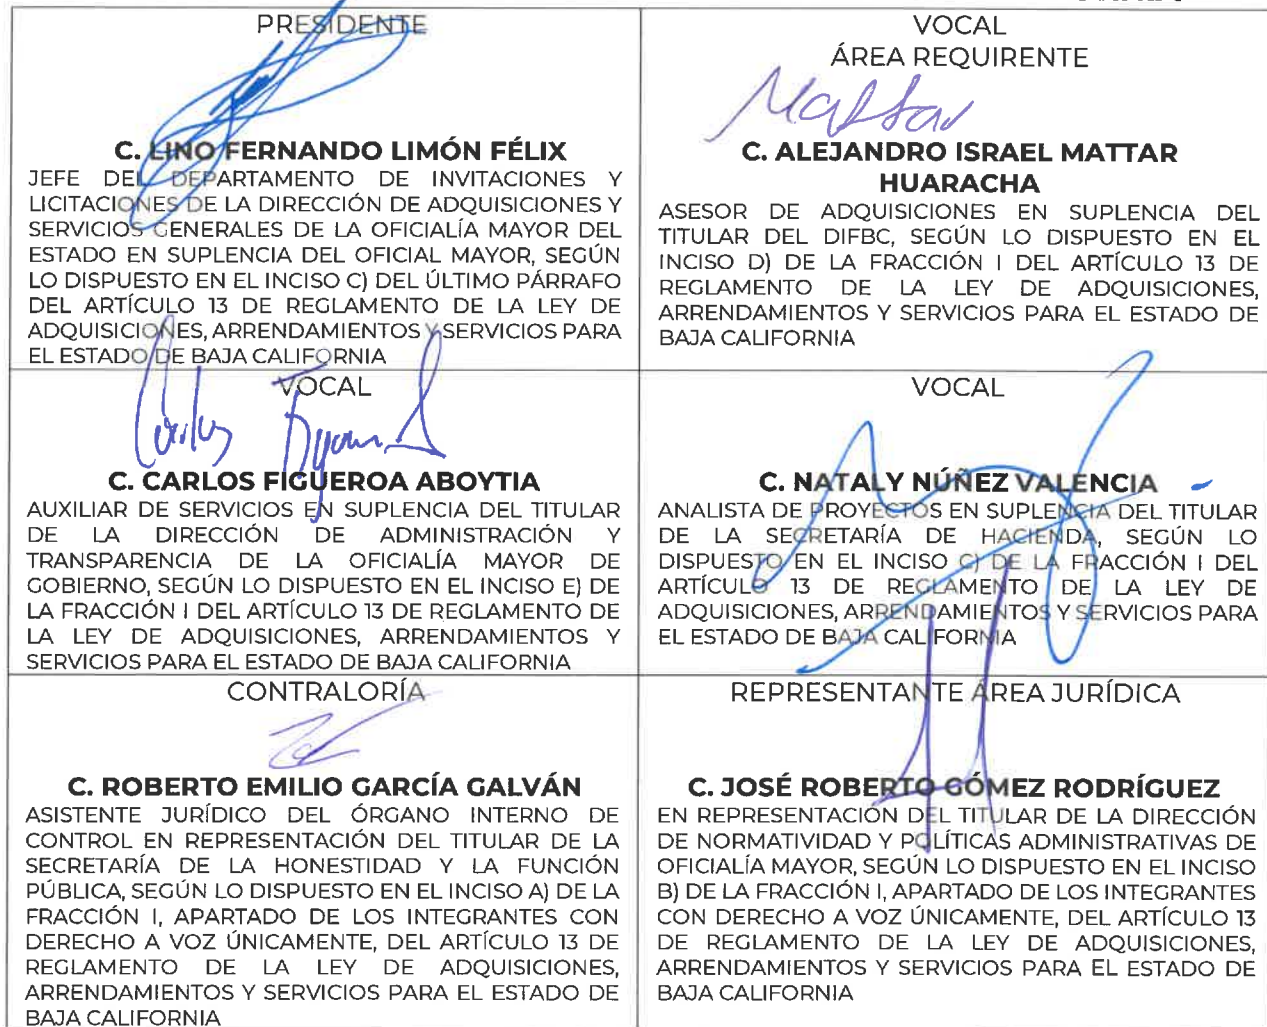 PRESIDENTE
C. LINO FERNANDO LIMÓN FÉLIX
JEFE DEL DEPARTAMENTO DE INVITACIONES Y
LICITACIONES DE LA DIRECCIÓN DE ADQUISICIONES Y
SERVICIOS GENERALES DE LA OFICIALÍA MAYOR DEL
ESTADO EN SUPLENCIA DEL OFICIAL MAYOR, SEGÚN
LO DISPUESTO EN EL INCISO C) DEL ÚLTIMO PÁRRAFO
DEL ARTÍCULO 13 DE REGLAMENTO DE LA LEY DE
ADQUISICIONES, ARRENDAMIENTOS Y SERVICIOS PARA
EL ESTADO DE BAJA CALIFORNIA
VOCAL
ÁREA REQUIRENTE
Mattar
C. ALEJANDRO ISRAEL MATTAR
HUARACHA
ASESOR DE ADQUISICIONES EN SUPLENCIA DEL
TITULAR DEL DIFBC, SEGÚN LO DISPUESTO EN EL
INCISO D) DE LA FRACCIÓN I DEL ARTÍCULO 13 DE
REGLAMENTO DE LA LEY DE ADQUISICIONES,
ARRENDAMIENTOS Y SERVICIOS PARA EL ESTADO DE
BAJA CALIFORNIA
VOCAL
Carlos Figueroa
C. CARLOS FIGUEROA ABOYTIA
AUXILIAR DE SERVICIOS EN SUPLENCIA DEL TITULAR
DE LA DIRECCIÓN DE ADMINISTRACIÓN Y
TRANSPARENCIA DE LA OFICIALÍA MAYOR DE
GOBIERNO, SEGÚN LO DISPUESTO EN EL INCISO E) DE
LA FRACCIÓN I DEL ARTÍCULO 13 DE REGLAMENTO DE
LA LEY DE ADQUISICIONES, ARRENDAMIENTOS Y
SERVICIOS PARA EL ESTADO DE BAJA CALIFORNIA
VOCAL
C. NATALY NÚÑEZ VALENCIA
ANALISTA DE PROYECTOS EN SUPLENCIA DEL TITULAR
DE LA SECRETARÍA DE HACIENDA, SEGÚN LO
DISPUESTO EN EL INCISO C) DE LA FRACCIÓN I DEL
ARTÍCULO 13 DE REGLAMENTO DE LA LEY DE
ADQUISICIONES, ARRENDAMIENTOS Y SERVICIOS PARA
EL ESTADO DE BAJA CALIFORNIA
CONTRALORÍA
C. ROBERTO EMILIO GARCÍA GALVÁN
ASISTENTE JURÍDICO DEL ÓRGANO INTERNO DE
CONTROL EN REPRESENTACIÓN DEL TITULAR DE LA
SECRETARÍA DE LA HONESTIDAD Y LA FUNCIÓN
PÚBLICA, SEGÚN LO DISPUESTO EN EL INCISO A) DE LA
FRACCIÓN I, APARTADO DE LOS INTEGRANTES CON
DERECHO A VOZ ÚNICAMENTE, DEL ARTÍCULO 13 DE
REGLAMENTO DE LA LEY DE ADQUISICIONES,
ARRENDAMIENTOS Y SERVICIOS PARA EL ESTADO DE
BAJA CALIFORNIA
REPRESENTANTE ÁREA JURÍDICA
C. JOSÉ ROBERTO GÓMEZ RODRÍGUEZ
EN REPRESENTACIÓN DEL TITULAR DE LA DIRECCIÓN
DE NORMATIVIDAD Y POLÍTICAS ADMINISTRATIVAS DE
OFICIALÍA MAYOR, SEGÚN LO DISPUESTO EN EL INCISO
B) DE LA FRACCIÓN I, APARTADO DE LOS INTEGRANTES
CON DERECHO A VOZ ÚNICAMENTE, DEL ARTÍCULO 13
DE REGLAMENTO DE LA LEY DE ADQUISICIONES,
ARRENDAMIENTOS Y SERVICIOS PARA EL ESTADO DE
BAJA CALIFORNIA